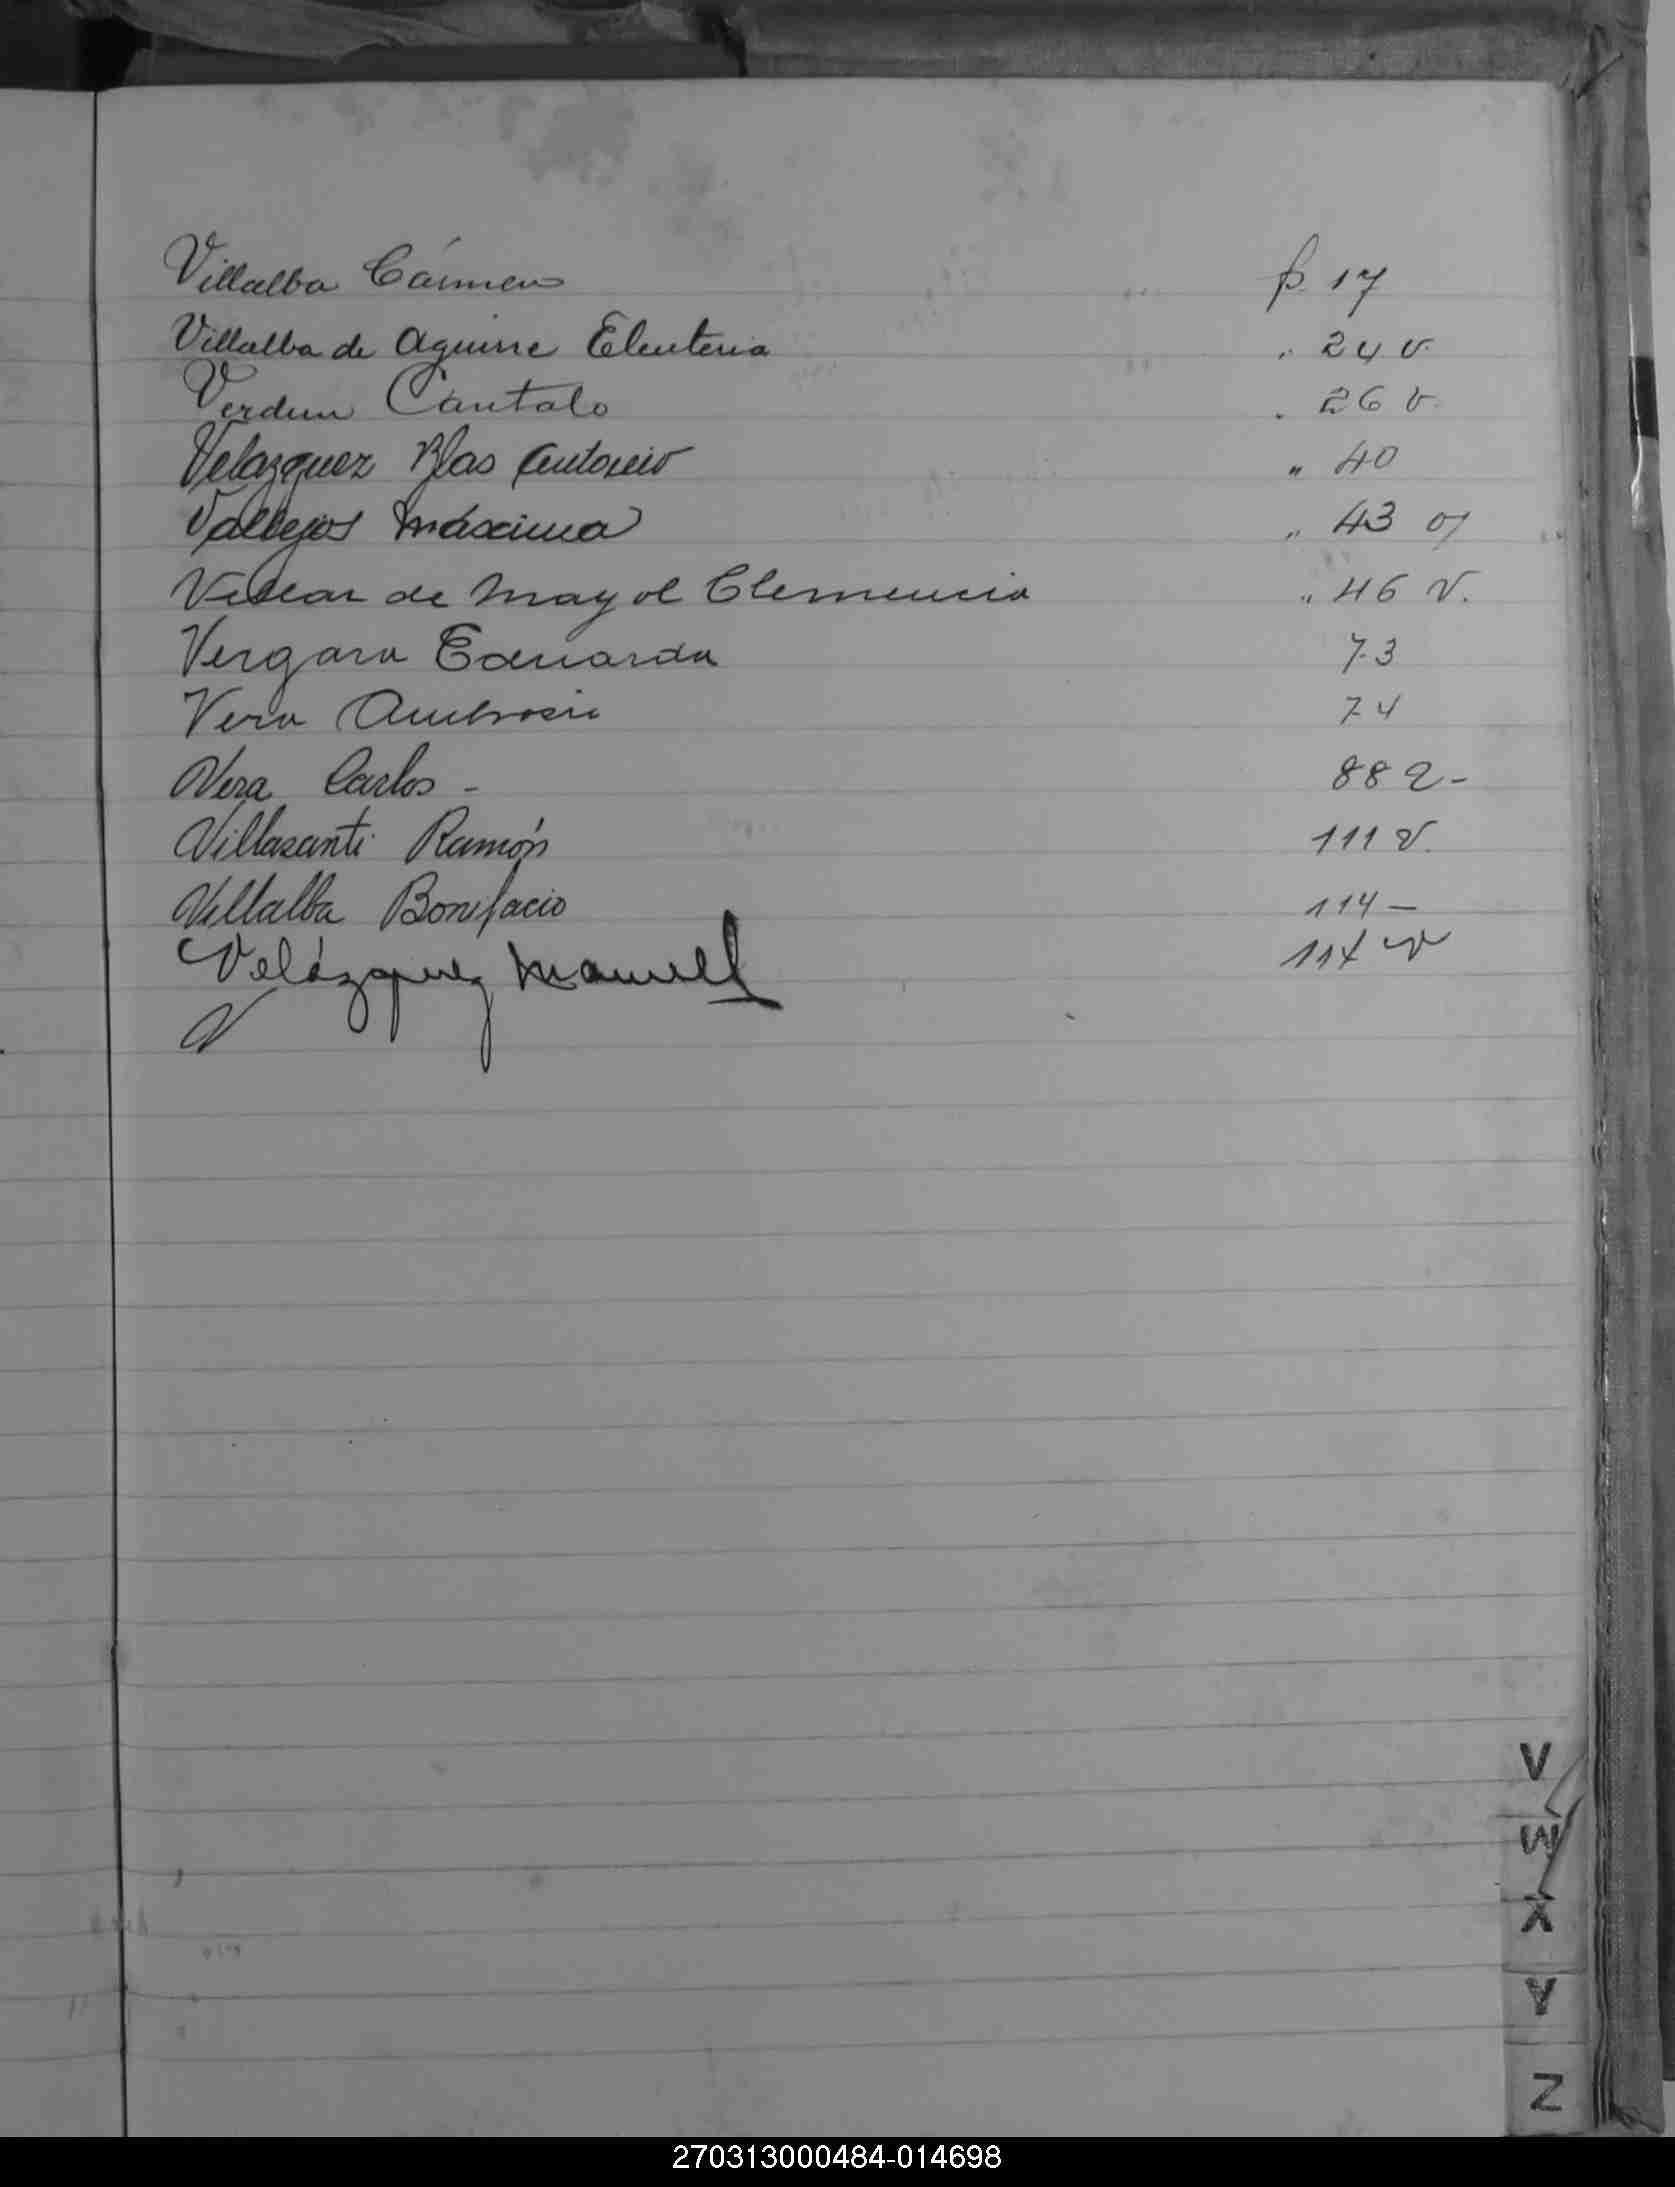 Villalba Cármen f. 17
Villalba de Aguirre Eleuteria " 24 v.
Verdun Cantalo " 26 v.
Velazquez Blas Antonio " 40
Vallejos Máxima " 43
de Mayol Clemencia " 46 v.
Vergara Eduarda 73
Vera Ambrosio 74
Vera Carlos - 88
Villasanti Ramón 111 v.
Villalba Bonifacio 114 -
Velázquez Manuel 114 v
V
V
W
X
Y
Z
270313000484-014698